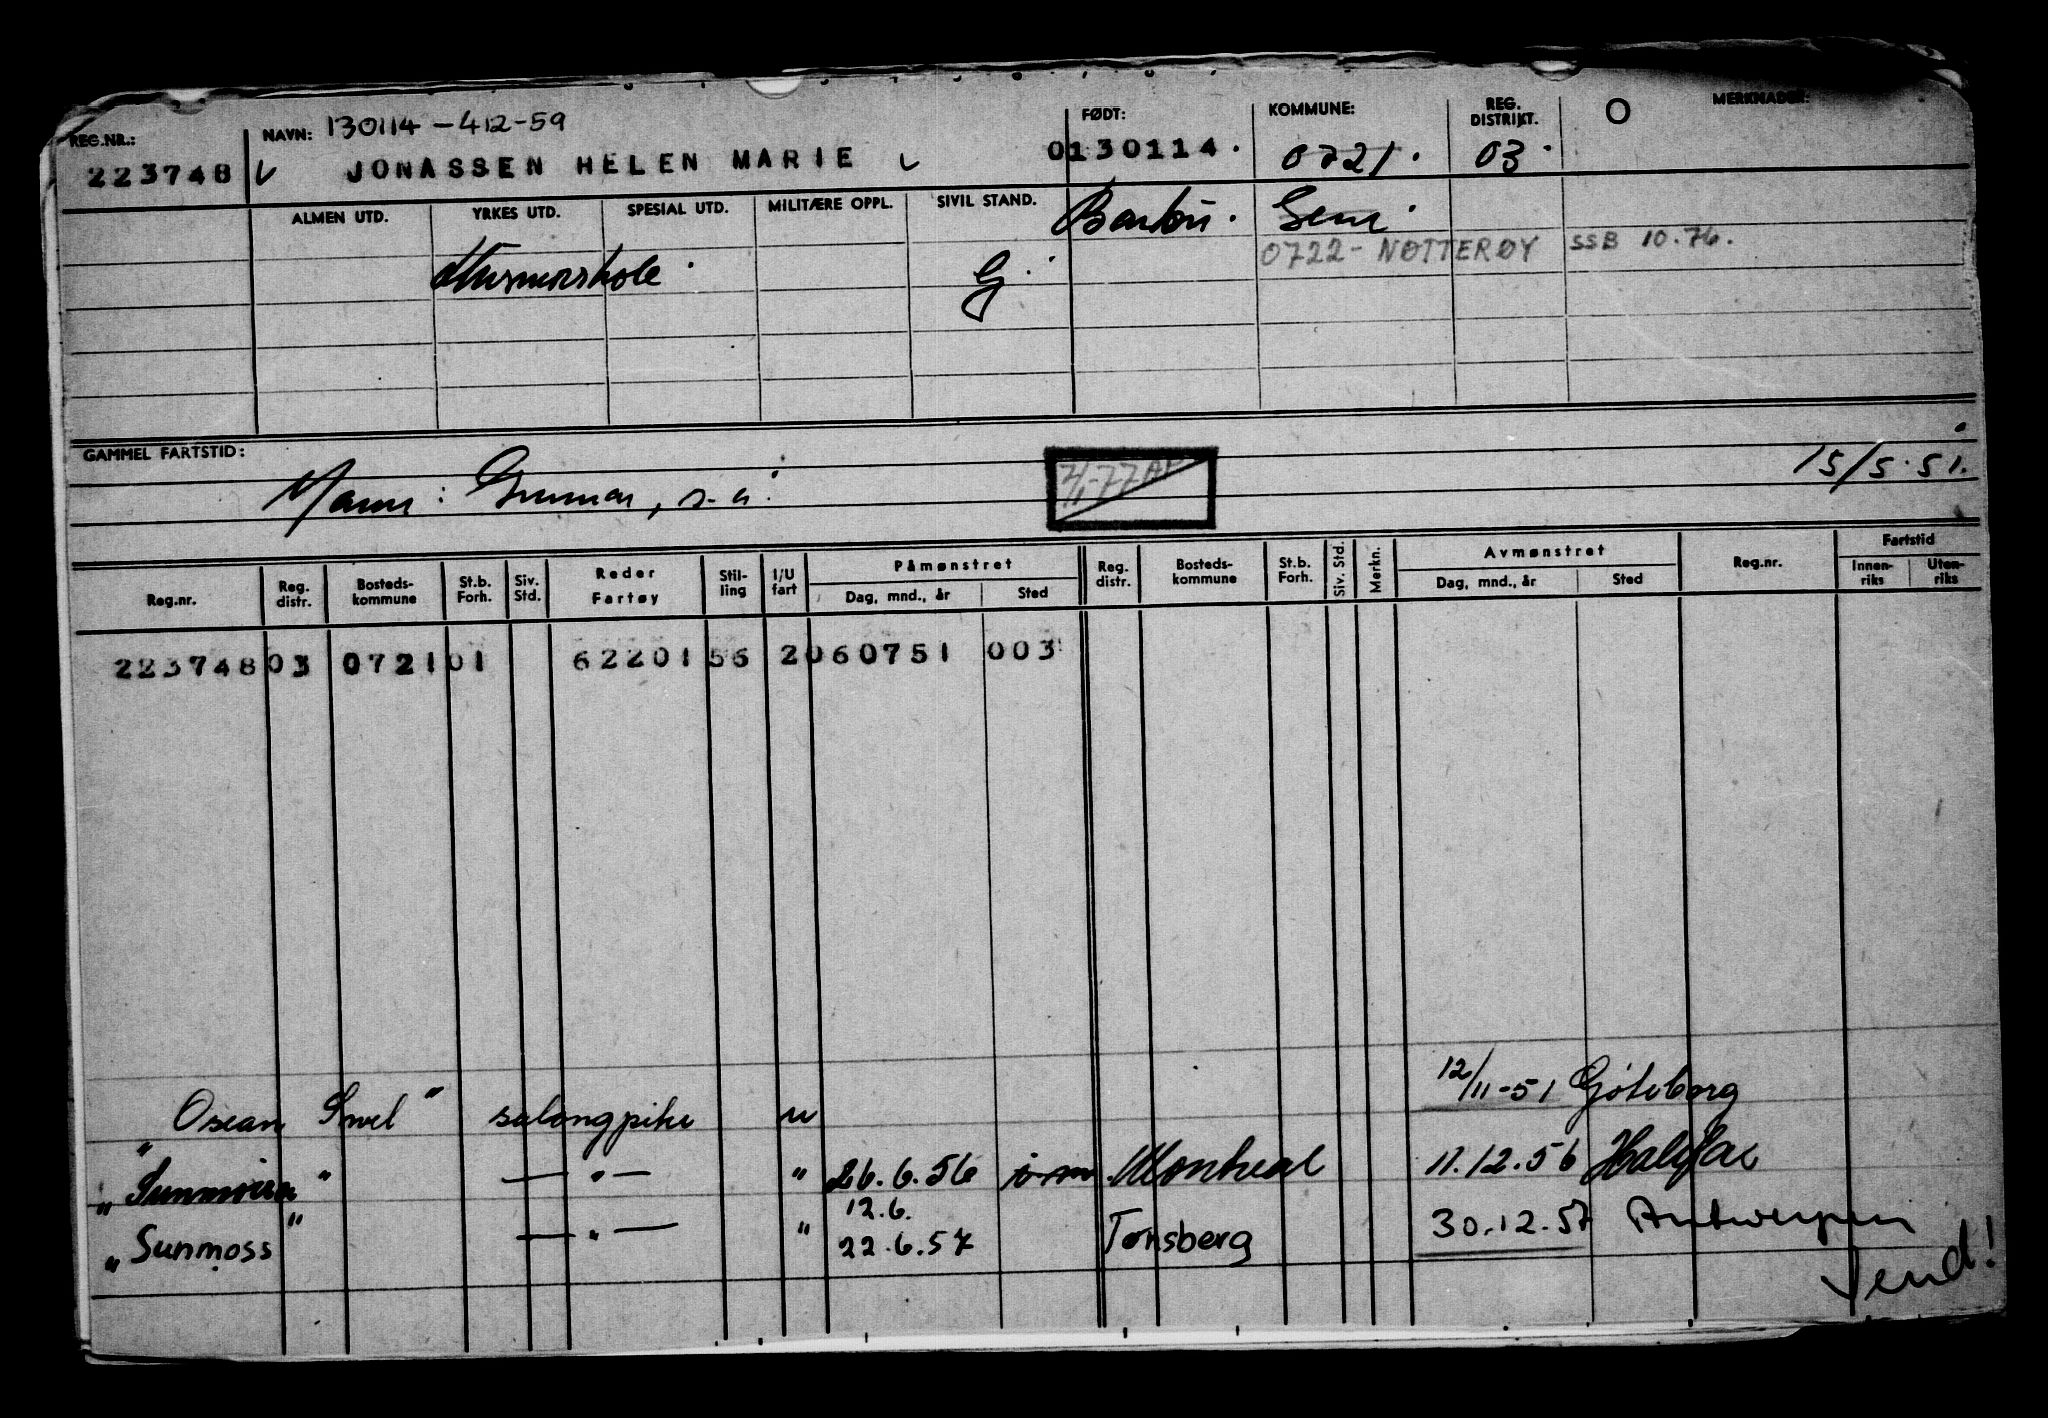 REG.NR.: NAVN: 130114-412-59 FØDT: KOMMUNE: REG. DISTRIKT. O MERKNADER:
223748 JONASSEN HELEN MARIE 0130114. 0721. 03.
ALMEN UTD. YRKES UTD. SPESIAL UTD. MILITÆRE OPPL. SIVIL STAND. Sem.
Husmorskole. G. 0722-NØTTERØY SSB 10.76.
GAMMEL FARTSTID: 15/5.51.
Mann: Gunnar, s.d.
Påmønstret Avmønstret Fartstid
Reg.nr. Reg. distr. Bosteds-kommune St.b. Forh. Siv. Std. Reder Fartøy Stil-ling I/U fart Dag, mnd., år Sted Reg. distr. Bosteds-kommune St.b. Forh. Siv. Std. Merkn. Dag, mnd., år Sted Reg.nr. Innen-riks Uten-riks
223748 03 0721 01 62201 56 2 060751 003
12/11-51 Göteborg
" Osean " salongpike u
" " — " — " 26.6.56 Montreal 11.12.56 Halifax
12.6.
" Sunmoss " — " — " 22.6.57 Tønsberg 30.12.57 Antwerpen
Vend!